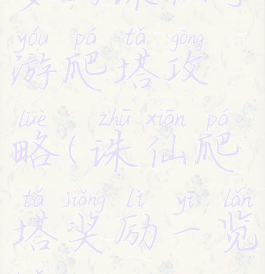 yóu pá tǎ gōng
游爬塔攻
lüè zhū xiān pá
略(诛仙爬
tǎ jiǎng lì yī lǎn
塔奖励一览